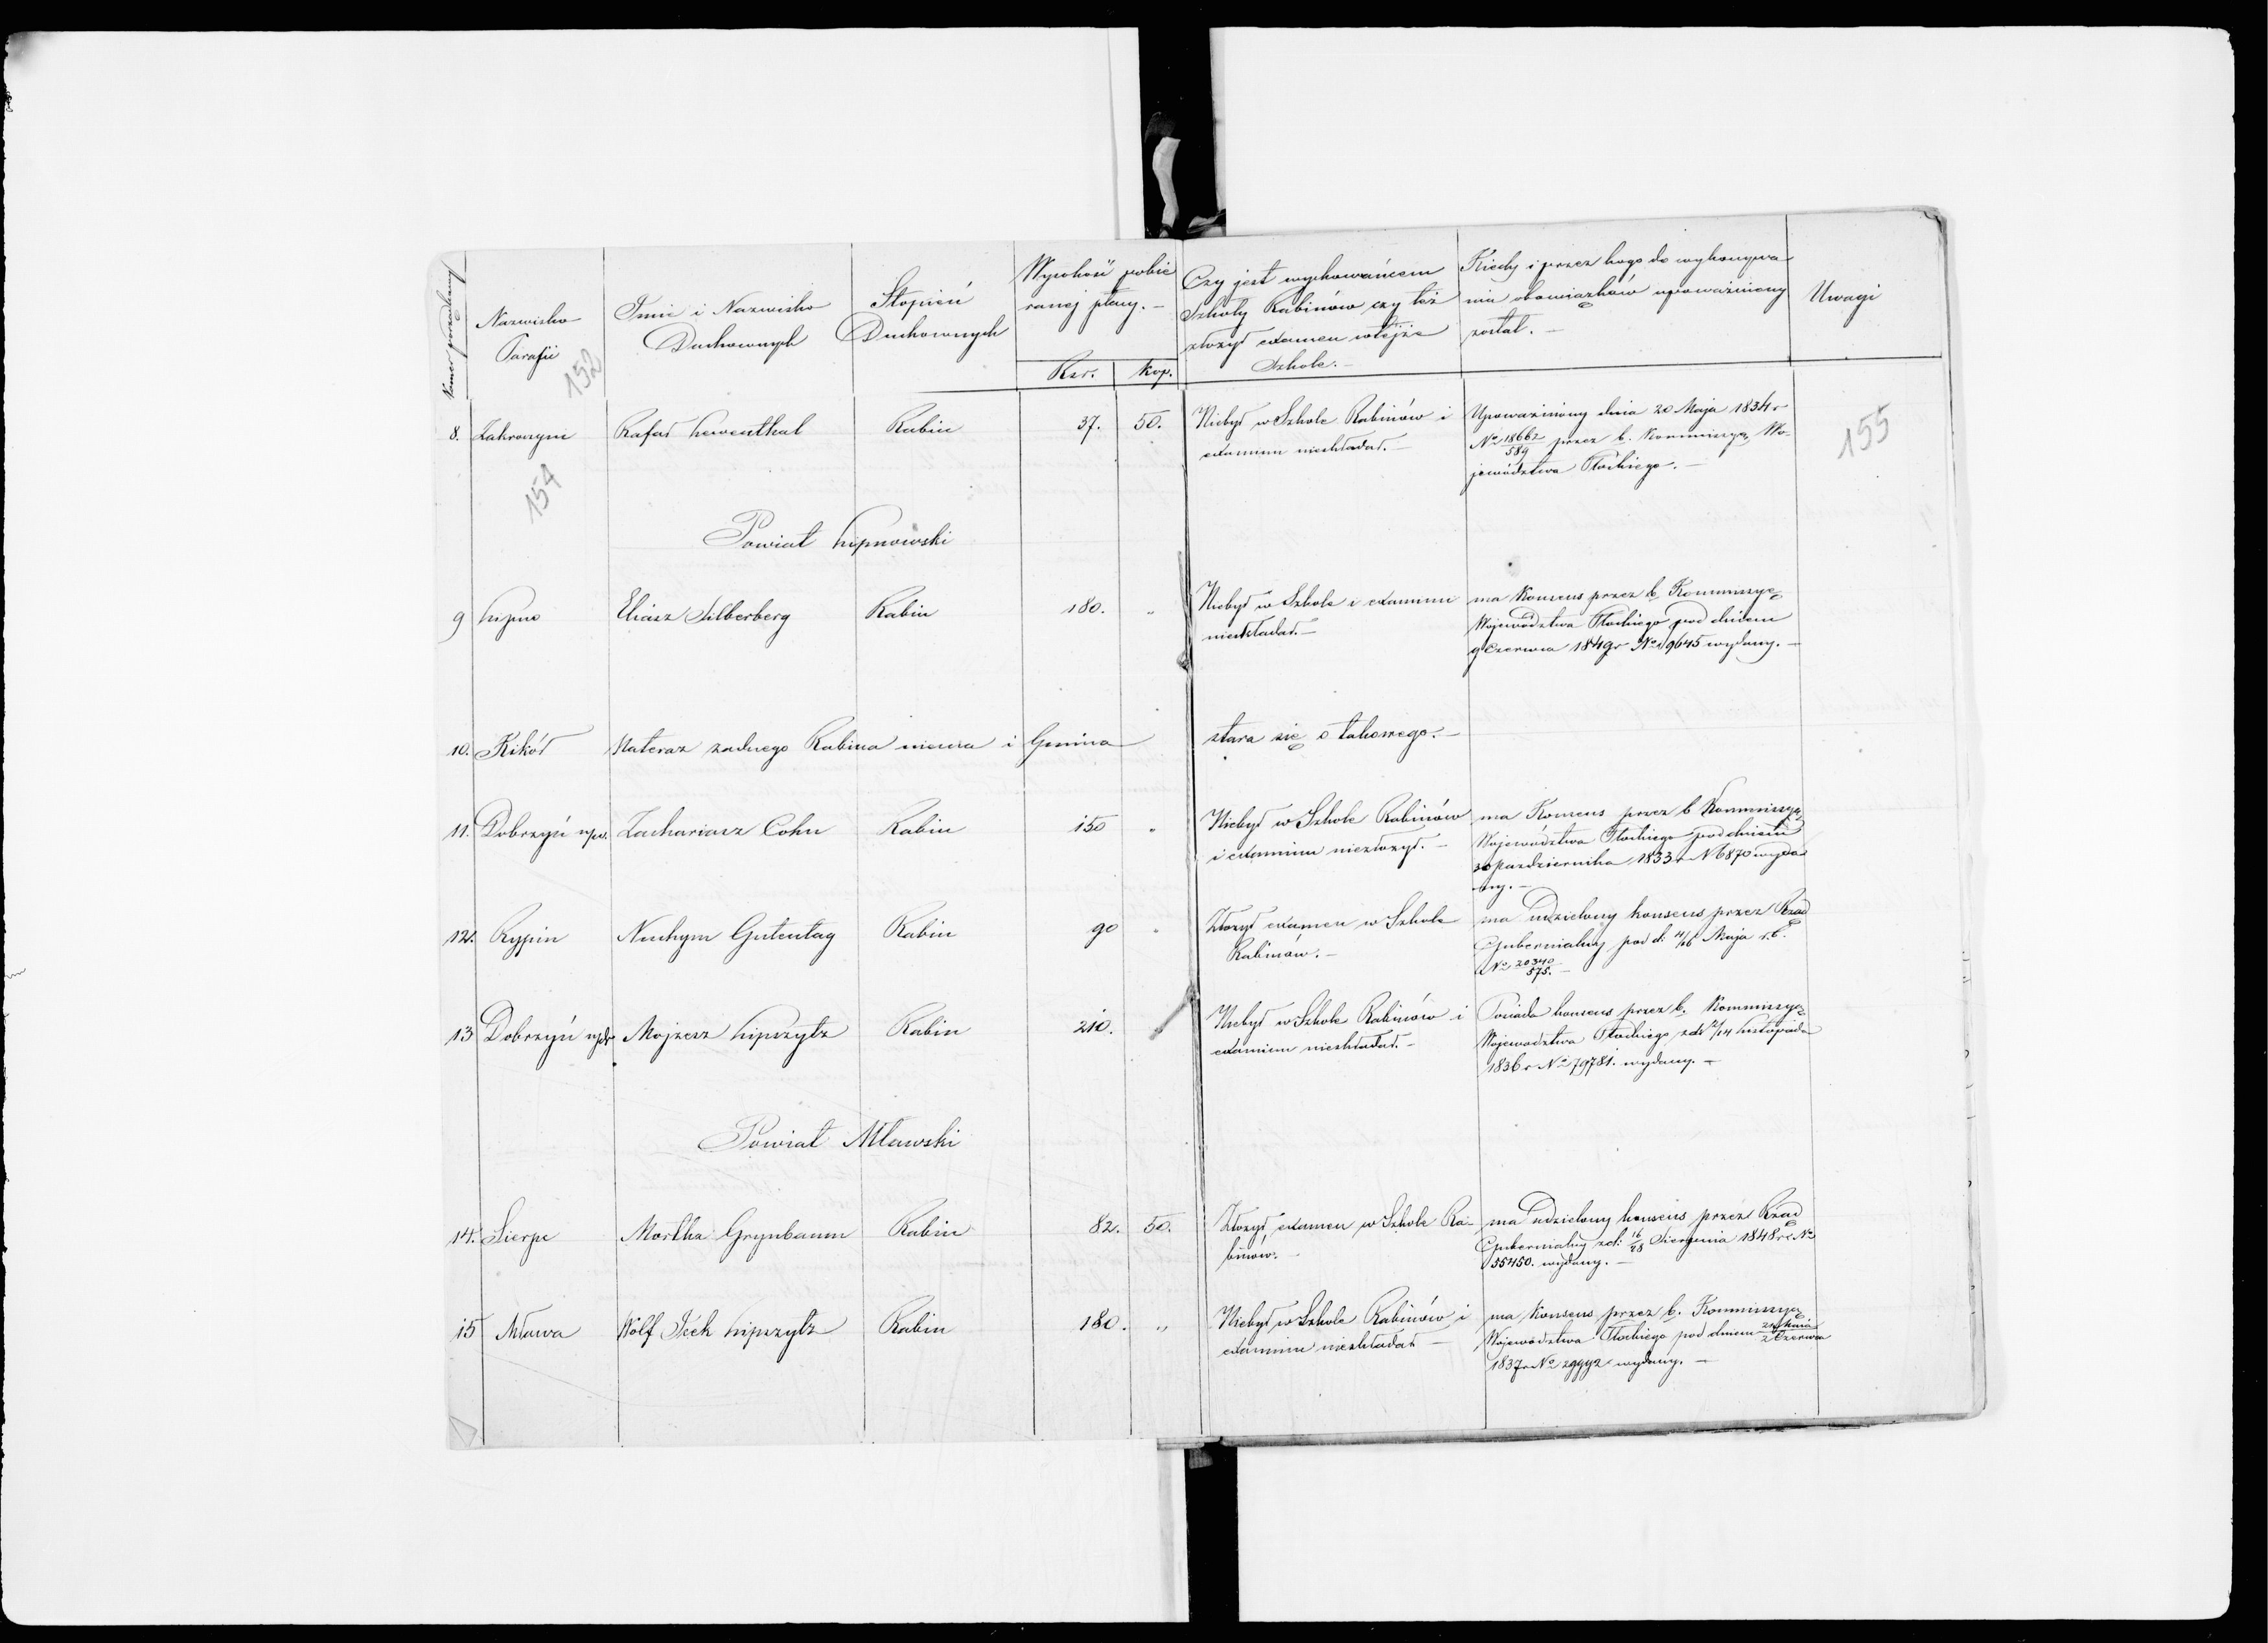 Numer porządkowy
Nazwisko Parafii
Imie i Nazwisko Duchownych
Stopień Duchownych
Wysokość pobieranej płacy. –
Rsr. Kop.
Czy jest wychowańcem
Szkoły Rabinów czy też
złożył examen wtejże
Szkole. –
Kiedy i przez kogo do wykonywa
nia obowiązków upoważniony
został. –
Uwagi
152
154
155
8. Zakroczym Rafał Lewenthal Rabin 37. 50.
Niebył w Szkole Rabinów i
examinu nieskładał. –
Upoważniony dnia 20 Maja 1834 r
No 18662/589 przez b. Kommissyą Wo-
jewództwa Płockiego. –
Powiat Lipnowski
9 Lipno Eliasz Silberberg Rabin 180. „
Niebył w Szkole i examinu
nieskładał. –
ma Konsens przez b. Kommissyę
Województwa Płockiego pod dniem
9 Czerwca 1849 r No 19645 wydany. –
10. Kikół Nateraz żadnego Rabina niema i Gmina stara się o takowego. –
11. Dobrzyń n/w. Zachariasz Cohn Rabin 150 „
Niebył w Szkole Rabinów
i examinu niezłożył. –
ma Konsens przez b Kommissyą
Województwa Płockiego pod dniem
30 Pazdziernika 1833 r N 6870 wyda
ny. –
12. Rypin Nuchym Gutentag Rabin 90 „
Złożył examen w Szkole
Rabinów. –
ma udzielony konsens przez Rząd
Gubernialny pod d: 4/16 Maja r.b.
No 20340/575. –
13 Dobrzyń n/dr Mojzesz Lipszytz Rabin 210. „
Niebył w Szkole Rabinów i
examinu nieskładał. –
Posiada konsens przez b. Kommissyą
Województwa Płockiego zd. 2/14 Listopada
1836 r No 79781. wydany. –
Powiat Mławski
14. Sierpc Mortka Grynbaum Rabin 82. 50.
Złożył examen w Szkole Ra-
binów. –
ma udzielony konsens przez Rząd
Gubernialny zd: 16/28 Sierpnia 1848 r No
55450. wydany. –
15 Mława Wolf Icek Lipszytz Rabin 180. „
Niebył w Szkole Rabinów i
examinu nieskładał –
ma Konsens przez b. Kommissyą
Województwa Płockiego pod dniem Maja/2 Czerwca
1837 r No 29992 wydany. –